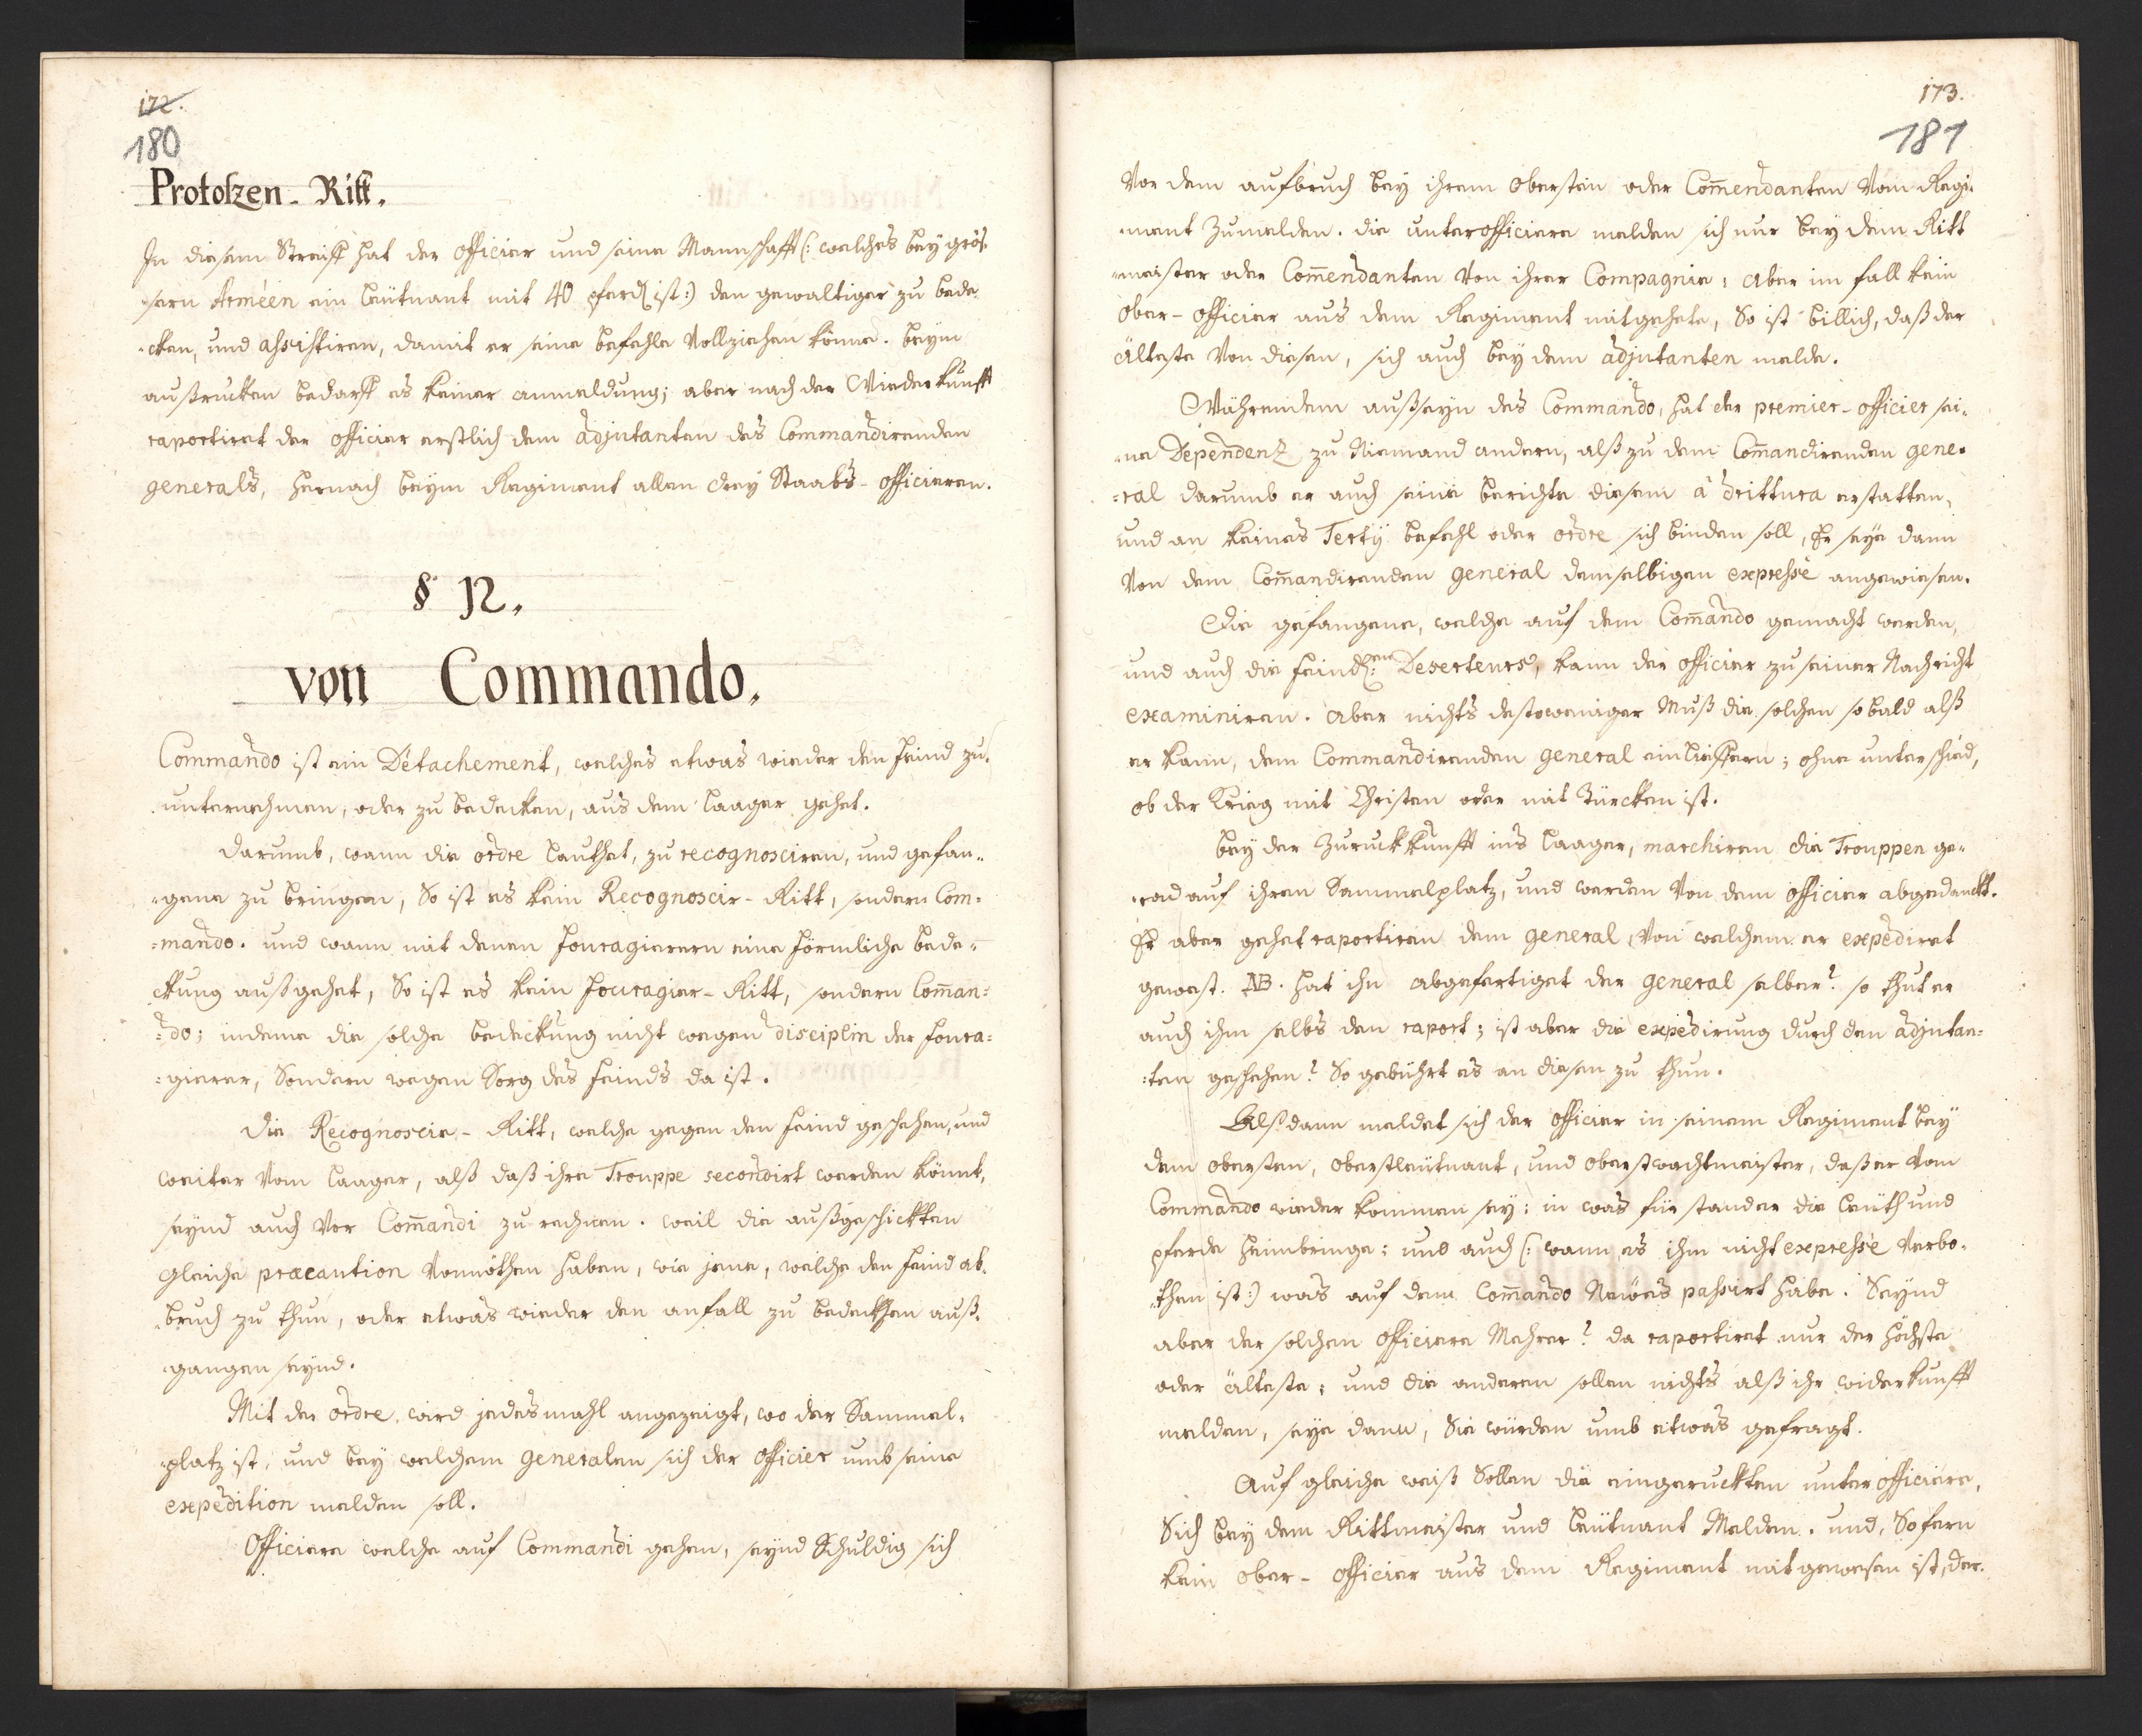 172.
180
Protolzen-Ritt.
In diesem Streiff hat der officier und seine Mannschafft (: welches bey grös=
=sern Arméen ein leütnant mit 40 pferd ist :) den gewaltiger zu bede=
=cken, und assistiren, damit er seine befehle Vollziehen könne. beym
außrucken bedarff es keiner anmeldung; aber nach der Wiederkunfft
raportiret der officier erstlich dem adjutanten des Commandirenden
generals, hernach beym Regiment allen drey Staabs-officieren.
§ 12.
von Commando.
Commando ist ein Détachement, welches etwas wieder den feind zu=
=unternehmen, oder zu bedecken, aus dem laager gehet.
darumb, wann die ordre lauthet, zu recognosciren, und gefan=
=gene zu bringen, So ist es kein Recognoscir-Ritt, sondern Com=
=mando. und wann mit denen fouragierern eine förmliche bede=
ckung außgehet, So ist es kein fouragier-Ritt, sondern Com̄an=
=do; indeme die solche bedeckung nicht wegen disciplin der foura=
=gierer, Sondern wegen Sorg des feinds da ist.
die Recognoscir-Ritt, welche gegen den feind geschehen, und
weiter vom laager, alß daß ihre Trouppe secondirt werden könnt,
seynd auch vor Com̄andi zu rechnen. weil die außgeschickten
gleiche præcaution vonnöthen haben, wie jene, welche den feind ab=
=bruch zu thun, oder etwas wieder den anfall zu bedeckhen auß=
=gangen seynd.
Mit der ordre wird jedesmahl angezeigt, wo der Sammel=
=platz ist, und bey welchem generalen sich der officier umb seine
expedition melden soll.
Officiere welche auf Commandi gehen, seynd Schuldig sich
173.
181
Vor dem aufbruch bey ihrem obersten oder Com̄endanten Vom Regi=
=ment Zumelden. die unterofficiere melden sich nur bey dem Ritt
=meister oder Com̄endanten von ihrer Compagnie; aber im fall kein
ober-officier aus dem Regiment mitgehete, So ist billich, daß der
älteste von diesen, sich auch bey dem adjutanten melde.
Währendem außseyn des Commando, hat der premier-officier sei=
=ne Dependenz zu Niemand andern, alß zu dem Com̄andirenden gene=
=ral darumb er auch seine berichte diesem à drittura erstatten,
und an keines Tertÿ befehl oder ordre sich binden soll, Er seye dann
von dem Com̄andirenden general demselbigen expressè angewiesen.
Die gefangene, welche auf dem Com̄ando gemacht werden,
und auch die feindl:en Deserteurs, kann der officier zu seiner Nachricht
examiniren. aber nichts destoweniger Muß die solchen sobald alß
er kann, dem Commandirenden general einlieffern; ohne unterschied,
ob der Krieg mit Christen oder mit Türcken ist.
bey der Zuruckkunfft ins laager, marchiren die Trouppen ge=
=rad auf ihren Sammelplatz, und werden von dem officier abgedanckt.
Er aber gehet raportiren dem general, von welchem er expediret
gewest. NB. hat ihn abgefertiget der general selber? so thut er
auch ihm selbs den raport; ist aber die expedirung durch den adjutan=
=ten geschehen? So gebührt es an diesen zu thun.
Alßdann meldet sich der officier in seinem Regiment bey
dem obersten, oberstleütnant, und oberstwachtmeister, daß er vom
Commando wieder kommen sey: in was für stander die leüth und
pferde heimbringe: und auch (: wann es ihm nicht expressè verbo=
=then ist :) was auf dem Com̄ando Neües passirt habe. Seynd
aber der solchen officiere Mehrer? da raportiret nur der höchste
oder älteste; und die anderen sollen nichts alß ihr widerkunfft
melden, seye dann, Sie würden umb etwas gefragt.
Auf gleiche weiß Sollen die eingeruckten unterofficiere,
Sich bey dem Rittmeister und leütnant Melden. und, Sofern
kein ober-officier aus dem Regiment mitgewesen ist, der=